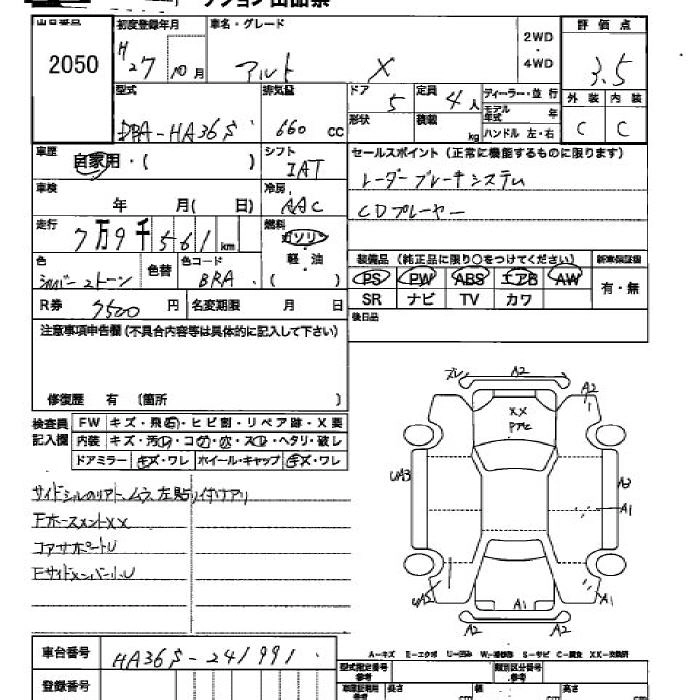 出品番号 2050
初度登録年月 H27 10月
車名・グレード アルト X
2WD・4WD
評価点 3.5
外装 C 内装 C
型式 DBA-HA36S
排気量 660 CC
ドア 5
定員 4人
ディーラー・並行
形状
積載 kg
モデル年式 年
ハンドル 左・右
車歴 自家用・( )
シフト IAT
セールスポイント (正常に機能するものに限ります)
レーダーブレーキシステム
CDプレーヤー
車検 年 月( 日)
冷房 AAC
走行 7万9千561km
燃料 ガソリン 軽・油 ( )
色 シルバー2トーン
色替
色コード BRA
装備品 (純正品に限り○をつけてください) 新車保証書
PS PW ABS エアB AW
SR ナビ TV カワ
有・無
R券 7500円
名変期限 月 日
後日品
注意事項申告欄(不具合内容等は具体的に記入して下さい)
修復歴 有 (箇所 )
検査員記入欄
FW キズ・飛石・ヒビ割・リペア跡・X要
内装 キズ・汚れ・コゲ・穴・スレ・ヘタリ・破レ
ドアミラー キズ・ワレ ホイール・キャップ キズ・ワレ
コアサポートU
A2 A2 XX A3 A1 A1 A2 A2 A1
A-キズ E-エクボ U-凹み W-補修跡 S-サビ C-腐食 XX-交換済
車台番号 HA36S-241991
登録番号
型式指定番号 参考
類別区分番号 参考
長さ cm 幅 cm 高さ cm